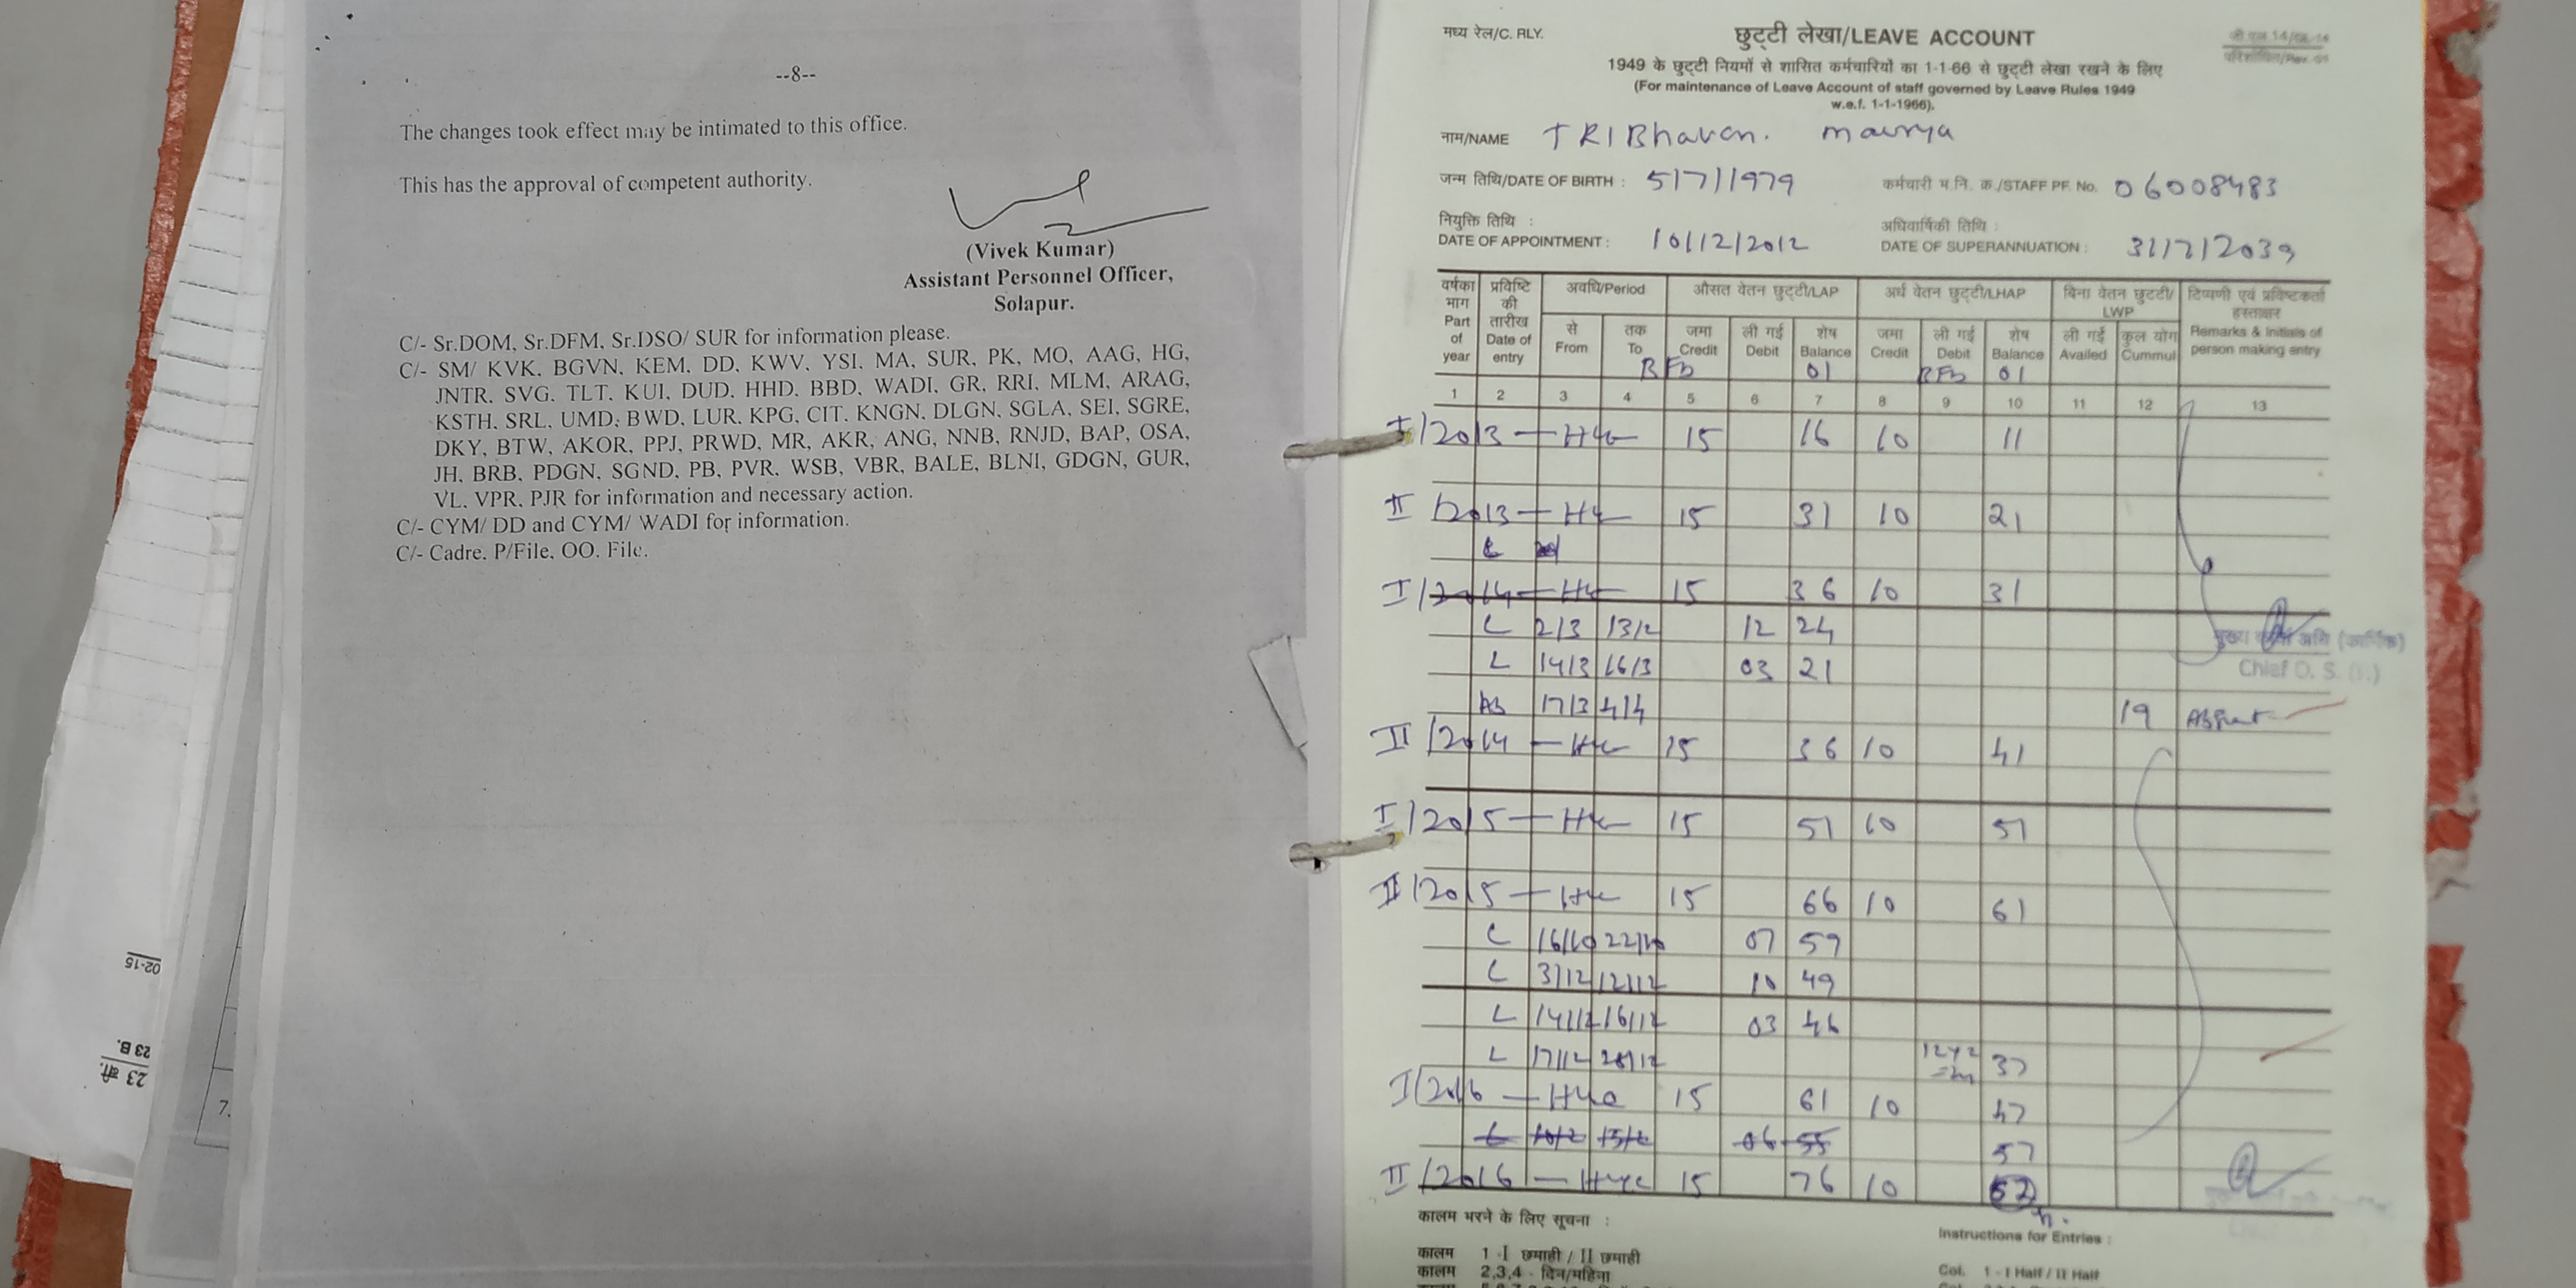 23 बी.
23 B.
02-15
7.
--8--
The changes took effect may be intimated to this office.
This has the approval of competent authority.
(Vivek Kumar)
Assistant Personnel Officer,
Solapur.
C/- Sr.DOM, Sr.DFM, Sr.DSO/ SUR for information please.
C/- SM/ KVK, BGVN, KEM, DD, KWV, YSI, MA, SUR, PK, MO, AAG, HG,
JNTR, SVG, TLT, KUI, DUD, HHD, BBD, WADI, GR, RRI, MLM, ARAG,
KSTH, SRL, UMD, BWD, LUR, KPG, CIT, KNGN, DLGN, SGLA, SEI, SGRE,
DKY, BTW, AKOR, PPJ, PRWD, MR, AKR, ANG, NNB, RNJD, BAP, OSA,
JH, BRB, PDGN, SGND, PB, PVR, WSB, VBR, BALE, BLNI, GDGN, GUR,
VL, VPR, PJR for information and necessary action.
C/- CYM/ DD and CYM/ WADI for information.
C/- Cadre, P/File, OO. File.
मध्य रेल/C. RLY.
छुट्टी लेखा/LEAVE ACCOUNT
1949 के छुट्टी नियमों से शासित कर्मचारियों का 1-1-66 से छुट्टी लेखा रखने के लिए
(For maintenance of Leave Account of staff governed by Leave Rules 1949
w.e.f. 1-1-1966).
नाम/NAME TRIBhavan. maurya
जन्म तिथि/DATE OF BIRTH : 5/7/1979 कर्मचारी भ.नि. क्र./STAFF PF. No. 06008483
नियुक्ति तिथि : अधिवार्षिकी तिथि :
DATE OF APPOINTMENT : 10/12/2012 DATE OF SUPERANNUATION : 31/7/2039
वर्षका भाग Part of year
प्रविष्टि की तारीख Date of entry
अवधि/Period
से From
तक To
औसत वेतन छुट्टी/LAP
जमा Credit
ली गई Debit
शेष Balance
अर्ध वेतन छुट्टी/LHAP
जमा Credit
ली गई Debit
शेष Balance
बिना वेतन छुट्टी/ LWP
ली गई Availed
कुल योग Cummul
टिप्पणी एवं प्रविष्टकर्ता हस्ताक्षर
Remarks & Initials of person making entry
1 2 3 4 5 6 7 8 9 10 11 12 13
01 01
I/2013 15 16 10 11
II/2013 15 31 10 21
I/2014 15 36 10 31
L 2/3 13/2 12 24
L 14/3 16/3 03 21
17/3 4/4 19 Absent
II/2014 15 36 10 41
I/2015 15 51 10 51
II/2015 15 66 10 61
16/10 22/10 07 59
3/12 12/12 10 49
L 14/12 16/12 03 46
L 17/12 28/12 37
I/2016 15 61 10 47
06 55 57
II/2016 15 76 10
Chief O. S.
कालम भरने के लिए सूचना :
Instructions for Entries :
कालम 1 -I छमाही / II छमाही
Col. 1 - I Half / II Half
कालम 2,3,4 - दिन/महिना